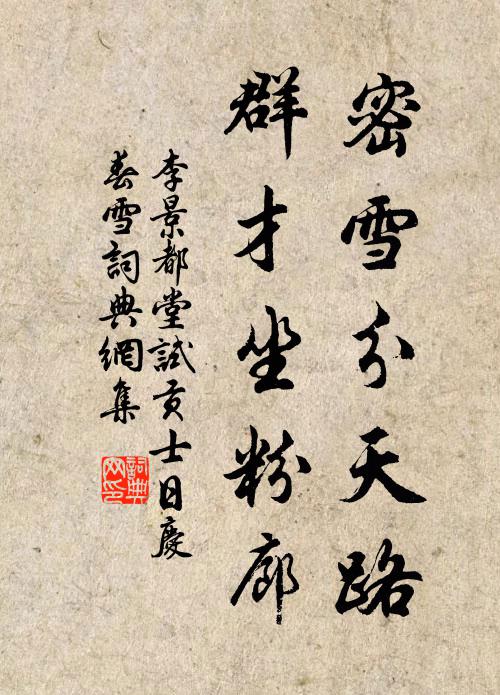 密雪分天路
群才坐粉廊
李景都堂試貢士日慶
春雪詞典網集
詞典
网印